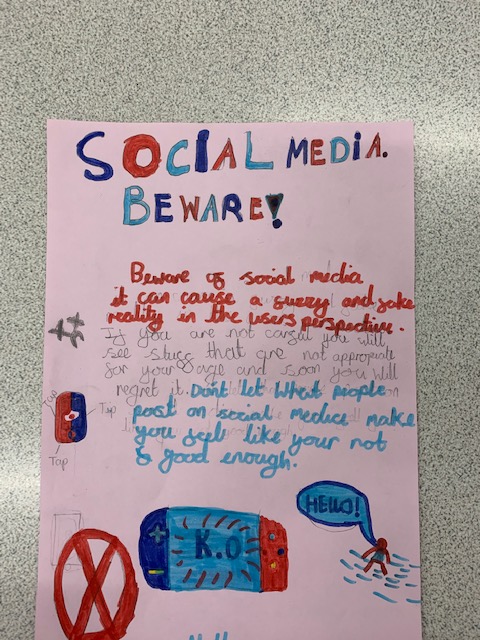 SOCIAL MEDIA.
BEWARE!
Beware of social media
it can cause a and
reality in the users perspective.
If you are not you will
see that are not appropriate
for your age and soon you will
regret it. Dont let what people
post on social make
you like your not
good enough.
Tap
Tap
K.O
HELLO!